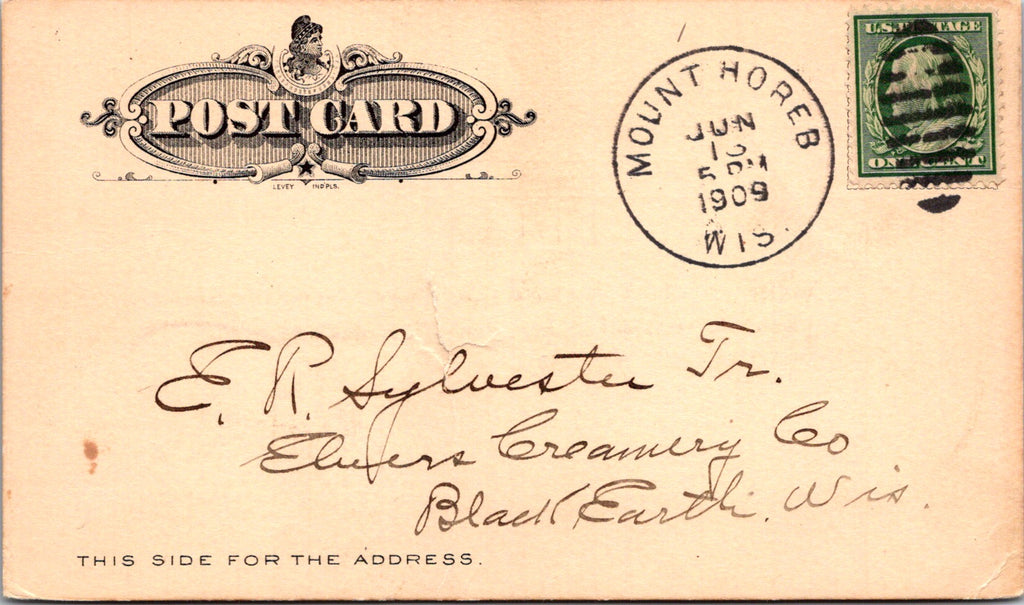 POST CARD
LEVEY IND'PLS.
MOUNT HOREB
JUN
5 PM
1909
WIS.
U.S. POSTAGE
ONE CENT
E. R. Sylvester Tr.
Elvers Creamery Co
Black Earth. Wis.
THIS SIDE FOR THE ADDRESS.